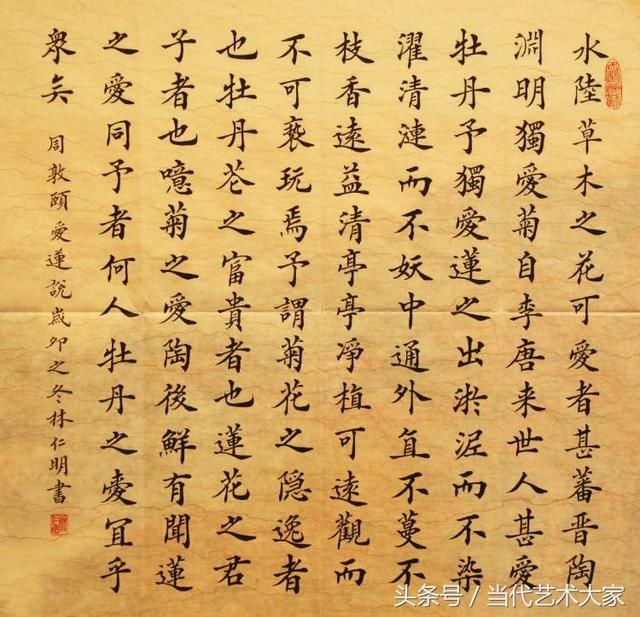 水陸草木之花可愛者甚蕃晋陶
淵明獨愛菊自李唐来世人甚愛
牡丹予獨愛蓮之出淤泥而不染
濯清漣而不妖中通外直不蔓不
枝香遠益清亭亭淨植可遠觀而
不可亵玩焉予謂菊花之隱逸者
也牡丹花之富貴者也蓮花之君
子者也噫菊之愛陶後鮮有聞蓮
之愛同予者何人牡丹之愛宜乎
衆矣
周敦頤愛蓮說歲卯之冬林仁明書
头条号/当代艺术大家